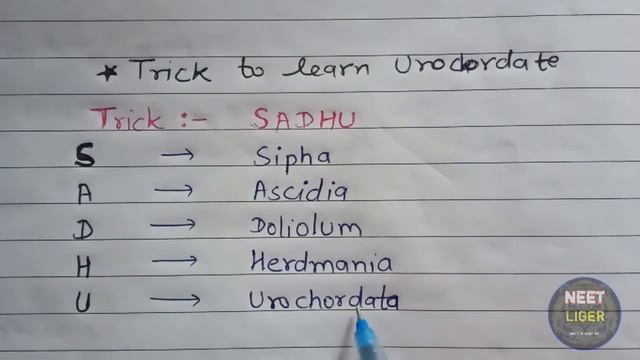 * Trick to learn Urocordate
Trick :- SADHU
S → Sipha
A → Ascidia
D → Doliolum
H → Herdmania
U → Urochordata
NEET
LIGER